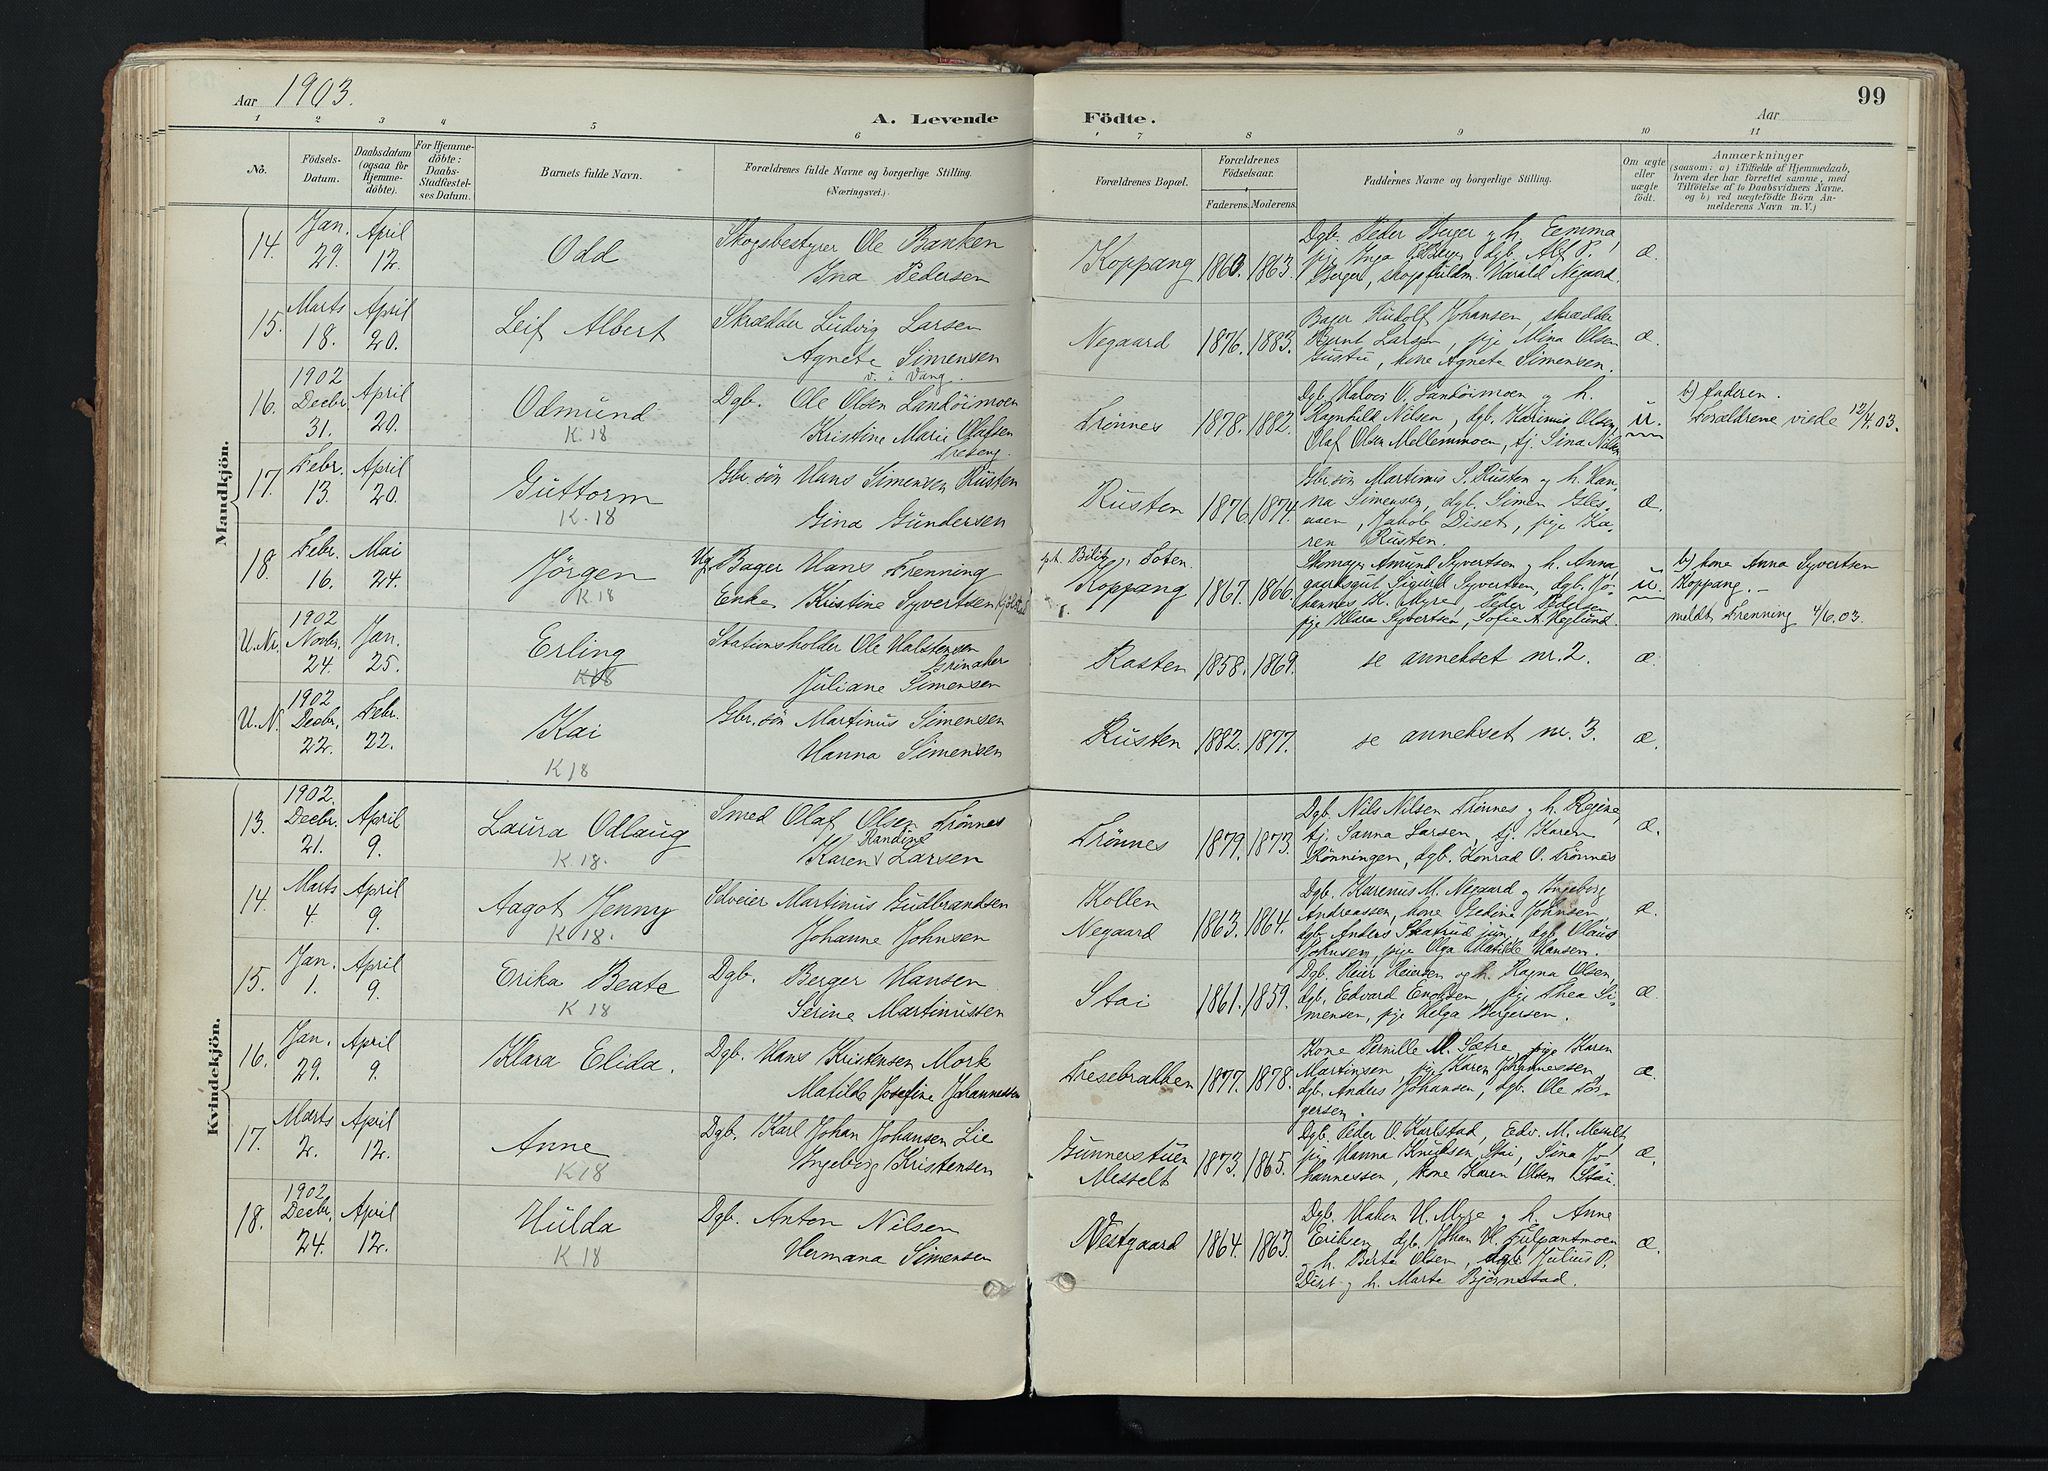 Aar 1903.
A. Levende
Födte.
Aar
99
1 2 3 4 5 6 7 8 9 10 11
No.
Födsels-
Datum.
Daabsdatum
(ogsaa for
Hjemme-
döbte).
For Hjemme-
döbte:
Daabs-
Stadfæstel-
ses Datum.
Barnets fulde Navn.
Forældrenes fulde Navne og borgerlige Stilling.
(Næringsvei.)
Forældrenes Bopæl.
Forældrenes
Födselsaar.
Faderens. Moderens.
Faddernes Navne og borgerlige Stilling.
Om ægte
eller
uægte
født.
Anmærkninger
(saasom: a) i Tilfælde af Hjemmedaab,
hvem der har forrettet samme, med
Tilföielse af to Daabsvidners Navne.
og b) ved uægtefödte Börn An-
melderens Navn m. V.)
Mandkjön.
14. Jan. 29. April 12. Odd
Skogsbestyrer Ole Banken
Ina Pedersen
Koppang 1863. 1863.
Dgb. Peder Berger og h. Eemma,
pje Inga Berger, dgb. Alf P.
Berger, skogfuldm. Harald Negaard.
æ.
15. Marts 18. April 20. Leif Albert
Skrædder Ludvig Larsen
Agnete Simensen
Negaard 1876. 1883.
Bager Rudolf Johansen, skrædder
Bernt Larsen, pije Mina Olsen
kone Agnete Simensen.
æ.
16. 1902 Decbr. 31. April 20. Odmund
K. 18
v. i Vang.
Dgb. Ole Olsen Landöimoen
Kristine Marie Olafsen
Treberg.
Trönnes 1878. 1882.
Dgb. Halvor O. Landöimoen og h.
Ragnhild Nilsen, dgb. Karinus Olsen,
Olaf Olsen Mellemmoen, tj. Sina Nilsen
u.
b) faderen.
Forældrene viede 12/4.03.
17. Febr. 13. April 20. Guttorm
K. 18
Gbr.sön Hans Simensen Rusten
Gina Gundersen
Rusten 1876. 1874.
Gbr.sön Martinus S. Rusten og h. Han-
na Simensen, dgb. Simen
Jakob Diset, pije Ka-
ren Rusten.
æ.
18. Febr. 16. Mai 24. Jörgen
K 18
Ug. Bager Hans Frenning
Enke Kristine Syvertsen
pt. Bilit, Toten.
Koppang 1867. 1866.
Skomager Amund Syvertsen og h. Anna,
gaardsgut Sigurd Syvertsen, dgb. Jo-
hannes K. Myre, Peder Pedersen,
pije Klara Syvertsen, Sofie A. Heglund.
u.
b) kone Anna Syvertsen
Koppang.
meldt Frenning 4/6.03.
U.Nr. 1902 Novbr. 24. Jan. 25. Erling
K18
Stationsholder Ole Halstensen
Grinaker
Juliane Simensen
Rasten 1858. 1869.
se annekset nr. 2. æ.
U.N. 1902 Decbr. 22. Febr. 22. Kai
K 18
Gbr.sön Martinus Simensen
Hanna Simensen
Rusten 1882. 1877.
se annekset nr. 3. æ.
Kvindekjön.
13. 1902. Decbr. 21. April 9. Laura Odlaug
K 18.
Smed Olaf Olsen Trönnes
Randine
Karen Larsen
Trönnes 1879. 1873.
Dgb. Nils Nilsen Trönnes og h. Regine,
tj. Sanna Larsen, tj. Karen
Rönningen, dgb. Konrad O. Trönnes
æ.
14. Marts 4. April 9. Aagot Jenny
K 18.
Selveier Martinus Gudbrandsen
Johanne Johnsen
Kollen
Negaard 1863. 1864.
Dgb. Karenus M. Negaard og Ingeborg
Andreassen, kone Gedina Johnsen,
dgb. Anders Skatrud jun, dgb. Olaus
Johnsen, pije Olga Matilde Hansen.
æ.
15. Jan. 1. April 9. Erika Beate
K 18
Dgb. Berger Hansen
Serine Martinussen
Stai 1861. 1859.
Dgb. Reier Reiersen og h. Ragna Olsen,
dgb. Edvard Enoksen, pije Thea Si-
mensen, pije Helga Bergersen.
æ.
16. Jan. 29. April 9. Klara Elida.
Dgb. Hans Kristensen Mork
Matilde Josefine Johannessen
Tresebrakken 1877. 1878.
Kone Pernille M. Sætre, pije Karen
Martinsen, pij Karen Johannessen
dgb. Anders Johansen, dgb. Ole Tor-
gersen.
æ.
17. Marts 2. April 12. Anne
K 18
Dgb. Karl Johan Johansen Lie
Ingeborg Kristensen
Gunnerstuen
Messelt 1873. 1865.
Dgb. Peder O. Karlstad, Edv. M. Messelt
pij Hanna Knudsen Stai, Sina Jo-
hannessen, kone Karen Olsen Stai.
æ.
18. 1902 Decbr. 24. April 12. Hulda
K 18
Dgb. Anton Nilsen
Hermana Simensen
Nestgaard 1864. 1863.
Dgb. Haken H. Myge og h. Anne
Eriksen, dgb. Johan H. Julpantmoen
og h. Berte Olsen, dgb. Julius P.
Diset og h. Marte Bjørnstad.
æ.